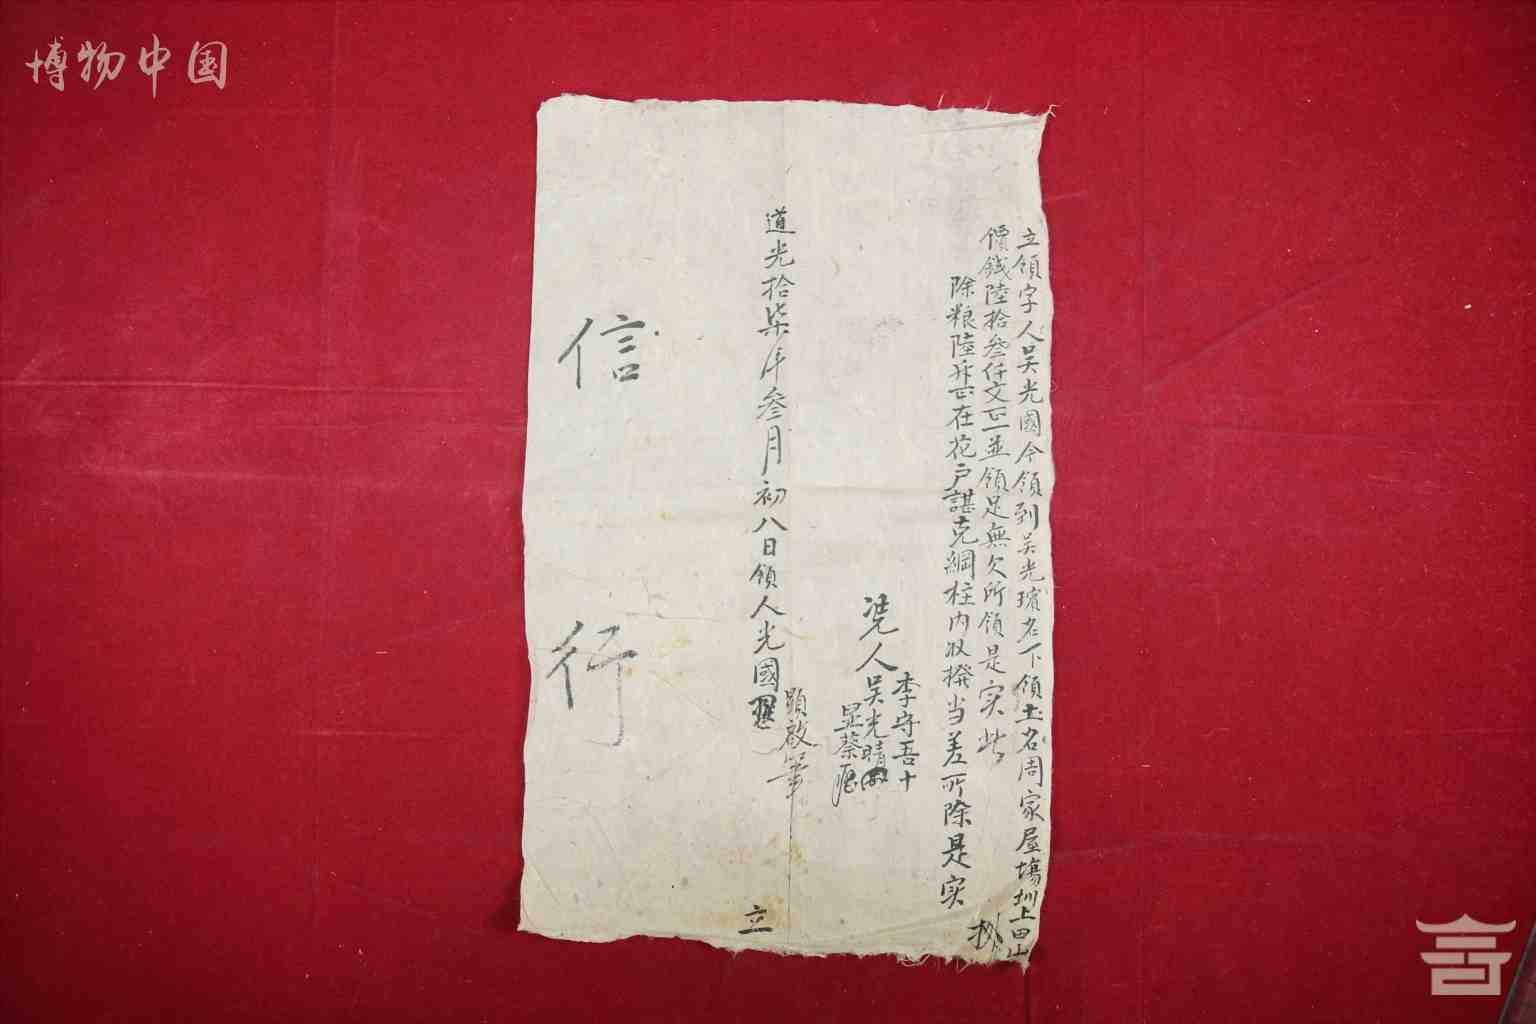 博物中国
立領字人吴光國今領到吴光璸名下領土名周家屋塲圳上田山
價錢陸拾叁仟文正並領足無欠所領是实此
除粮陸升正在花户諶克綱柱内收撥当差所除是实
凭人
李守吾十
吴光晴
昱蔡
道光拾柒年叁月初八日領人光國
顕啟筆
立
信行